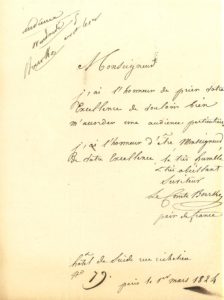 audience
A Monseigneur
j'ai l'honneur de prier votre
Excellence de vouloir bien
m'accorder une audience particulière
j'ai l'honneur d'être Monseigneur
de votre Excellence, le très humble
très obéissant
Serviteur
Le Comte
pair de france
hôtel de Suède rue richelieu
N° paris le 1er mars 1824